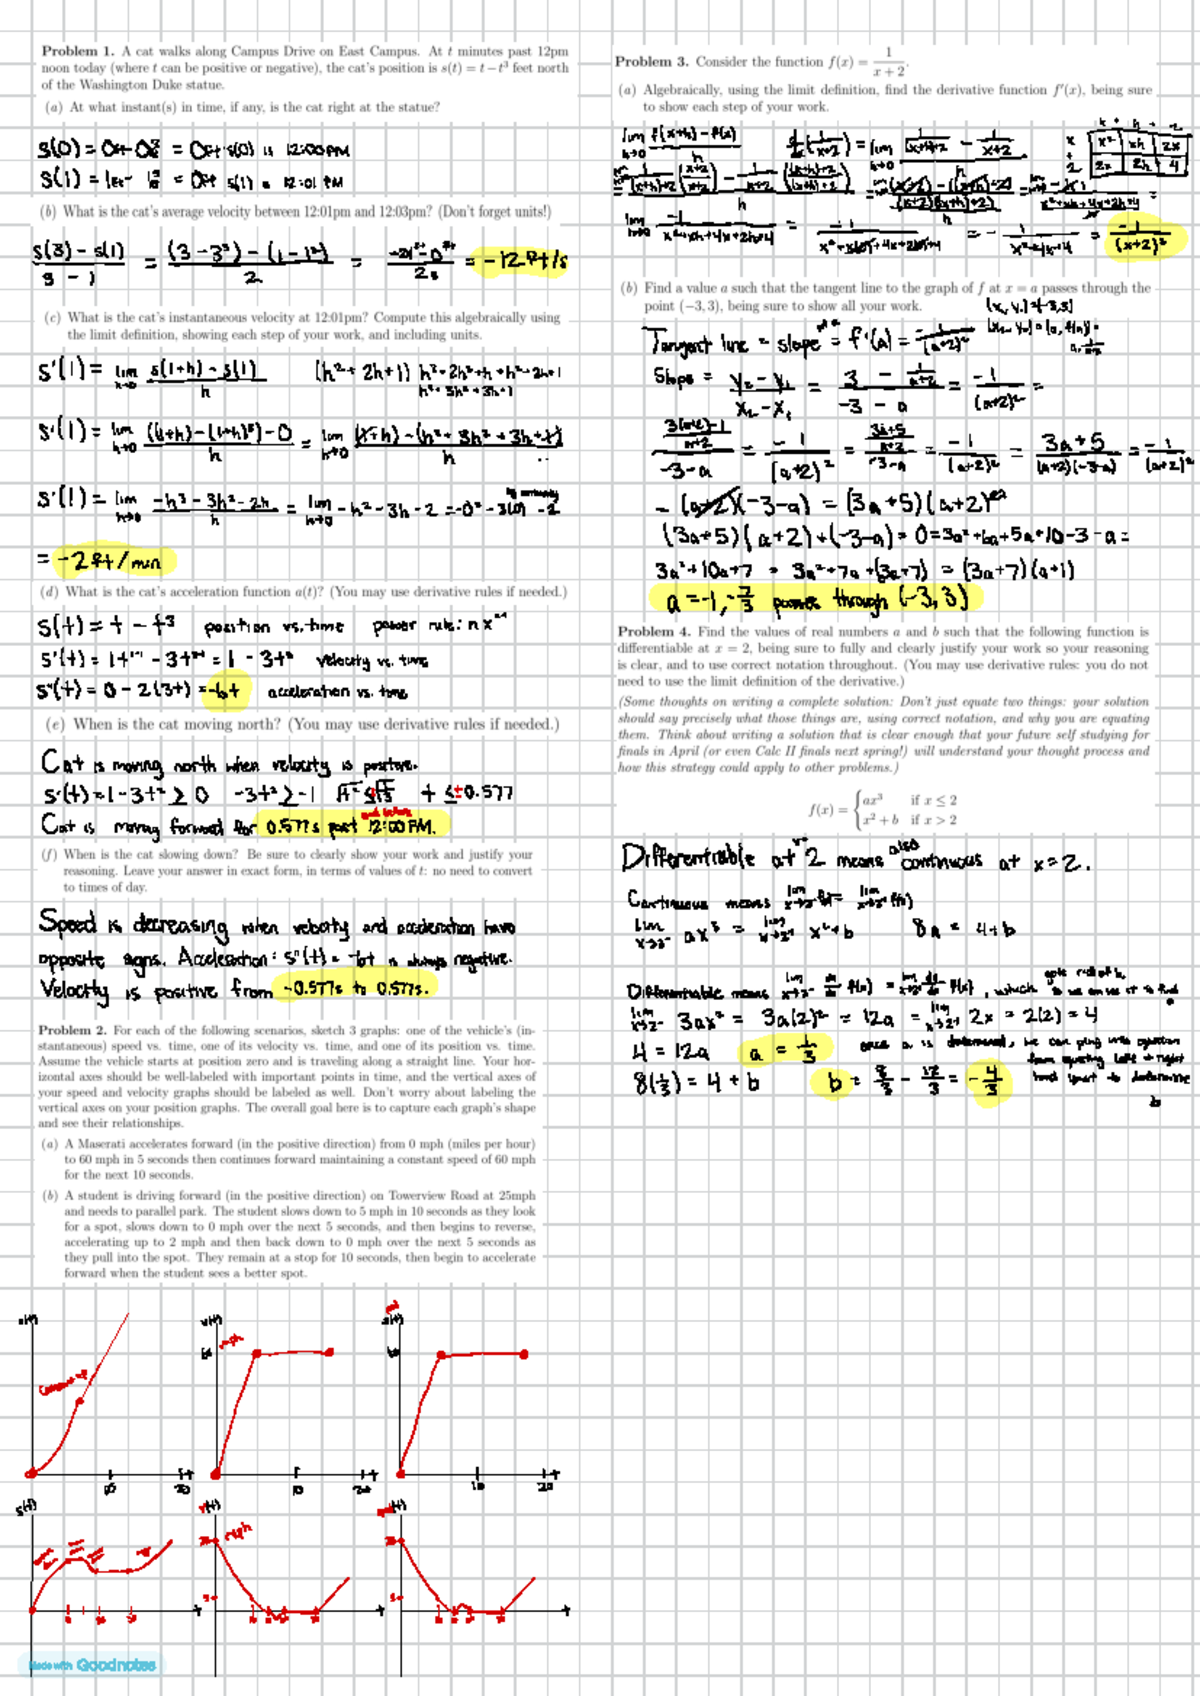 Problem 1. A cat walks along Campus Drive on East Campus. At t minutes past 12pm
noon today (where t can be positive or negative), the cat's position is s(t) = t − t³ feet north
of the Washington Duke statue.
(a) At what instant(s) in time, if any, is the cat right at the statue?
s(0) = 0ft - 0ft³ = 0ft s(0) is 12:00PM
s(1) = 1ft - 1ft³ = 0ft s(1) = 12:01 PM
(b) What is the cat's average velocity between 12:01pm and 12:03pm? (Don't forget units!)
s(3) - s(1) / 3 - 1 = (3 - 3³) - (1 - 1³) / 2 = -24ft - 0ft / 2s = -12ft/s
(c) What is the cat's instantaneous velocity at 12:01pm? Compute this algebraically using
the limit definition, showing each step of your work, and including units.
s'(1) = lim s(1+h) - s(1) / h (h² + 2h + 1)
s'(1) = lim h→0 ((1+h) - (1+h)³) - 0 / h = lim h→0 (1+h) - (h³ + 3h² + 3h + 1) / h
s'(1) = lim h→0 -h³ - 3h² - 2h / h = lim h→0 -h² - 3h - 2 = -0² - 3(0) - 2
= -2ft/min
(d) What is the cat's acceleration function a(t)? (You may use derivative rules if needed.)
s(t) = t - t³ position vs. time power rule: nxⁿ⁻¹
s'(t) = 1t¹⁻¹ - 3t³⁻¹ = 1 - 3t² velocity vs. time
s''(t) = 0 - 2(3t) = -6t acceleration vs. time
(e) When is the cat moving north? (You may use derivative rules if needed.)
Cat is moving north when velocity is positive.
s'(t) = 1 - 3t² ≥ 0 -3t² ≥ -1 t ≤ ±0.577
Cat is moving forward for 0.577s past 12:00 PM.
(f) When is the cat slowing down? Be sure to clearly show your work and justify your
reasoning. Leave your answer in exact form, in terms of values of t: no need to convert
to times of day.
Speed is decreasing when velocity and acceleration have
opposite signs. Acceleration: s''(t) = -6t is always negative.
Velocity is positive from -0.577s to 0.577s.
Problem 2. For each of the following scenarios, sketch 3 graphs: one of the vehicle's (in-
stantaneous) speed vs. time, one of its velocity vs. time, and one of its position vs. time.
Assume the vehicle starts at position zero and is traveling along a straight line. Your hor-
izontal axes should be well-labeled with important points in time, and the vertical axes of
your speed and velocity graphs should be labeled as well. Don't worry about labeling the
vertical axes on your position graphs. The overall goal here is to capture each graph's shape
and see their relationships.
(a) A Maserati accelerates forward (in the positive direction) from 0 mph (miles per hour)
to 60 mph in 5 seconds then continues forward maintaining a constant speed of 60 mph
for the next 10 seconds.
(b) A student is driving forward (in the positive direction) on Towerview Road at 25mph
and needs to parallel park. The student slows down to 5 mph in 10 seconds as they look
for a spot, slows down to 0 mph over the next 5 seconds, and then begins to reverse,
accelerating up to 2 mph and then back down to 0 mph over the next 5 seconds as
they pull into the spot. They remain at a stop for 10 seconds, then begin to accelerate
forward when the student sees a better spot.
v(t) mph
10 20
s(t) v(t) mph
Made with Goodnotes
Problem 3. Consider the function f(x) = 1 / x + 2.
(a) Algebraically, using the limit definition, find the derivative function f′(x), being sure
to show each step of your work.
lim h→0 f(x+h) - f(x) / h d/dx (1/x+2) = lim h→0 1/(x+h)+2 - 1/x+2
= -1 / (x+2)²
(b) Find a value a such that the tangent line to the graph of f at x = a passes through the
point (−3, 3), being sure to show all your work.
Tangent line = slope = f'(a) = -1 / (a+2)²
Slope = y₂ - y₁ / x₂ - x₁ = 3 - 1/a+2 / -3 - a = -1 / (a+2)² =
3(a+2)-1 / a+2 / -3-a = -1 / (a+2)² = 3a+5 / a+2 / -3-a = -1 / (a+2)² = 3a+5 / (a+2)(-3-a) = -1 / (a+2)²
- (a+2)(-3-a) = (3a+5)(a+2)²
(3a+5)(a+2) + (-3-a) = 0 = 3a² + 6a + 5a + 10 - 3 - a =
3a² + 10a + 7 = 3a² + 7a + (3a+7) = (3a+7)(a+1)
a = -1, -7/3 passes through (-3, 3)
Problem 4. Find the values of real numbers a and b such that the following function is
differentiable at x = 2, being sure to fully and clearly justify your work so your reasoning
is clear, and to use correct notation throughout. (You may use derivative rules: you do not
need to use the limit definition of the derivative.)
(Some thoughts on writing a complete solution: Don't just equate two things: your solution
should say precisely what those things are, using correct notation, and why you are equating
them. Think about writing a solution that is clear enough that your future self studying for
finals in April (or even Calc II finals next spring!) will understand your thought process and
how this strategy could apply to other problems.)
f(x) = { ax³ if x ≤ 2
x² + b if x > 2
Differentiable at x=2 means also continuous at x = 2.
Continuous means lim x→2⁻ f(x) = lim x→2⁺ f(x)
lim x→2⁻ ax³ = lim x→2⁺ x² + b 8a = 4 + b
Differentiable means lim x→2⁻ d/dx f(x) = lim x→2⁺ d/dx f(x), which
lim x→2⁻ 3ax² = 3a(2)² = 12a = lim x→2⁺ 2x = 2(2) = 4
4 = 12a a = 1/3 once a is determined, we can plug into equation
8(1/3) = 4 + b b = 8/3 - 12/3 = -4/3 to determine
b